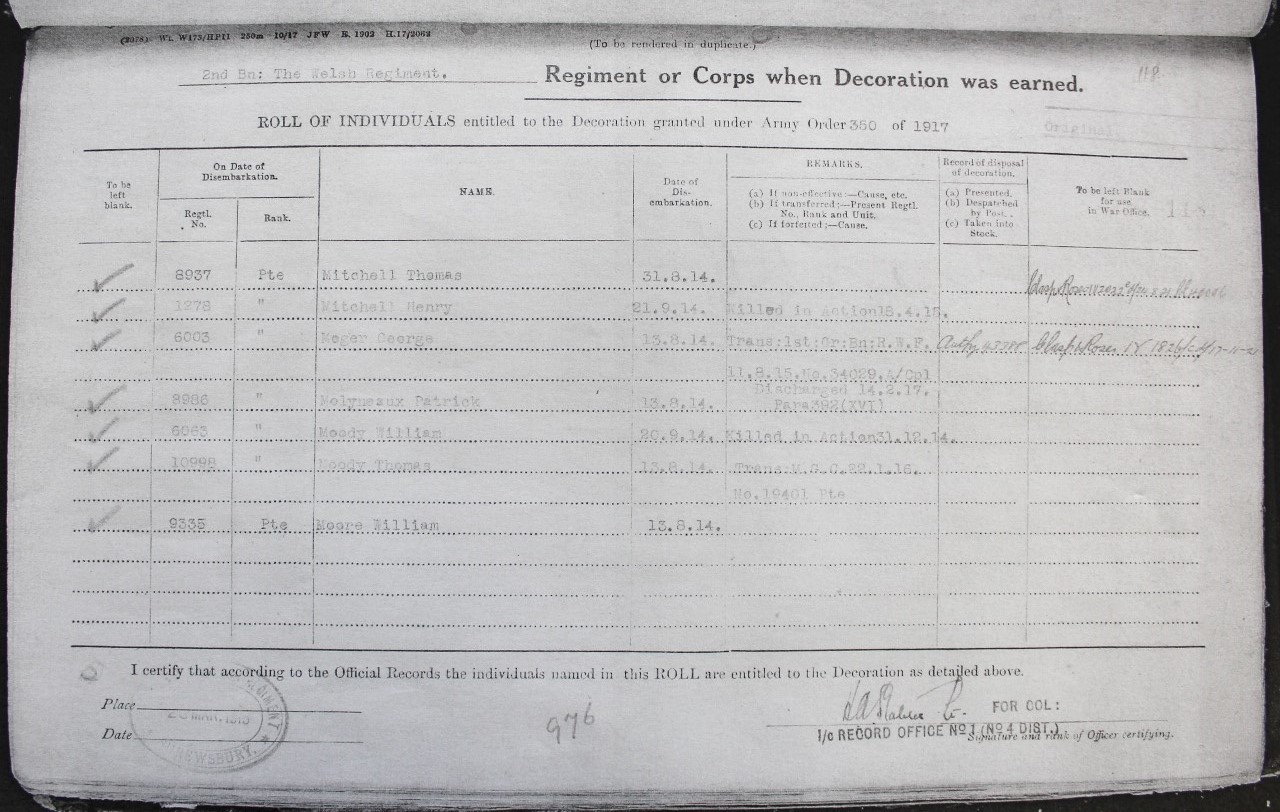 (2078) Wt. W173/HP11 250m 10/17 JFW E. 1902 H.17/2062
(To be rendered in duplicate.)
2nd Bn: The Welsh Regiment. Regiment or Corps when Decoration was earned. 118.
ROLL OF INDIVIDUALS entitled to the Decoration granted under Army Order 350 of 1917 Original
To be left blank. On Date of Disembarkation. Regtl. No. Rank. NAME. Date of Disembarkation. REMARKS. (a) If non-effective:—Cause, etc. (b) If transferred:—Present Regtl. No., Rank and Unit. (c) If forfeited;—Cause. Record of disposal of decoration. (a) Presented. (b) Despatched by Post. (c) Taken into Stock. To be left Blank for use in War Office.
8937 Pte Mitchell Thomas 31.8.14. Clasp & Roses
1278 " Mitchell Henry 21.9.14. Killed in Action 18.4.15.
6003 " Moger George 13.8.14. Trans:1st:Gr:Bn:R.W.F. Clasp & Roses
11.8.15.No.34029.A/Cpl
8986 " Molyneaux Patrick 13.8.14. Discharged 14.2.17. Para392(XVI)
6063 " Moody William 20.9.14. Killed in Action 31.12.14.
10998 " Moody Thomas 13.8.14. Trans:M.G.C.22.1.16.
No.19401 Pte
9335 Pte Moore William 13.8.14.
I certify that according to the Official Records the individuals named in this ROLL are entitled to the Decoration as detailed above.
Place
FOR COL:
976
Date
SHREWSBURY.
I/c RECORD OFFICE No 1 (No 4 DIST.)
Signature and rank of Officer certifying.